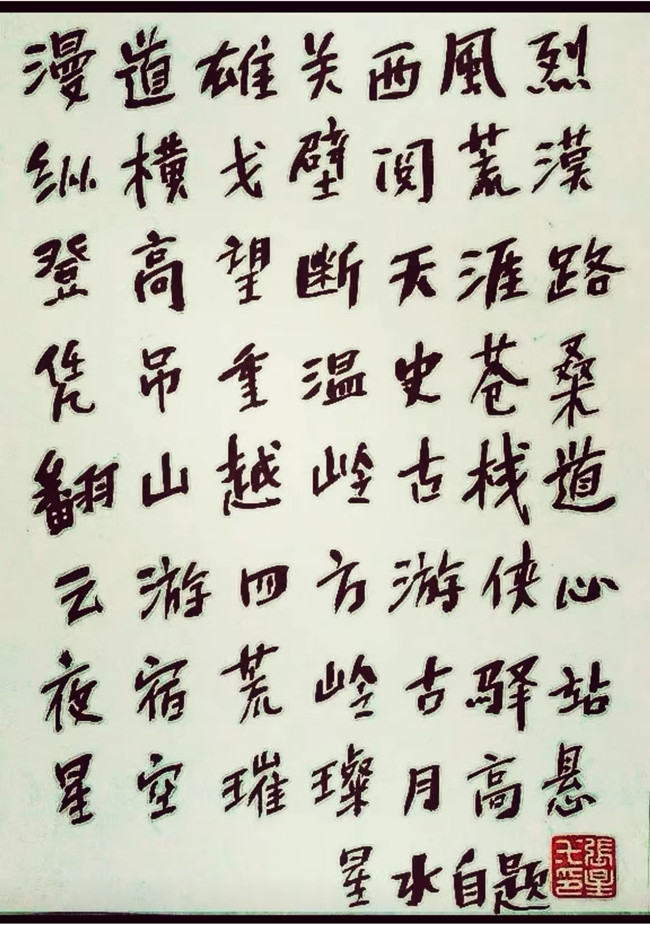 漫道雄关西風烈
纵横戈壁阅荒漠
登高望断天涯路
凭吊重温史苍桑
翻山越岭古栈道
云游四方游侠心
夜宿荒岭古驿站
星空璀璨月高悬
星水自题